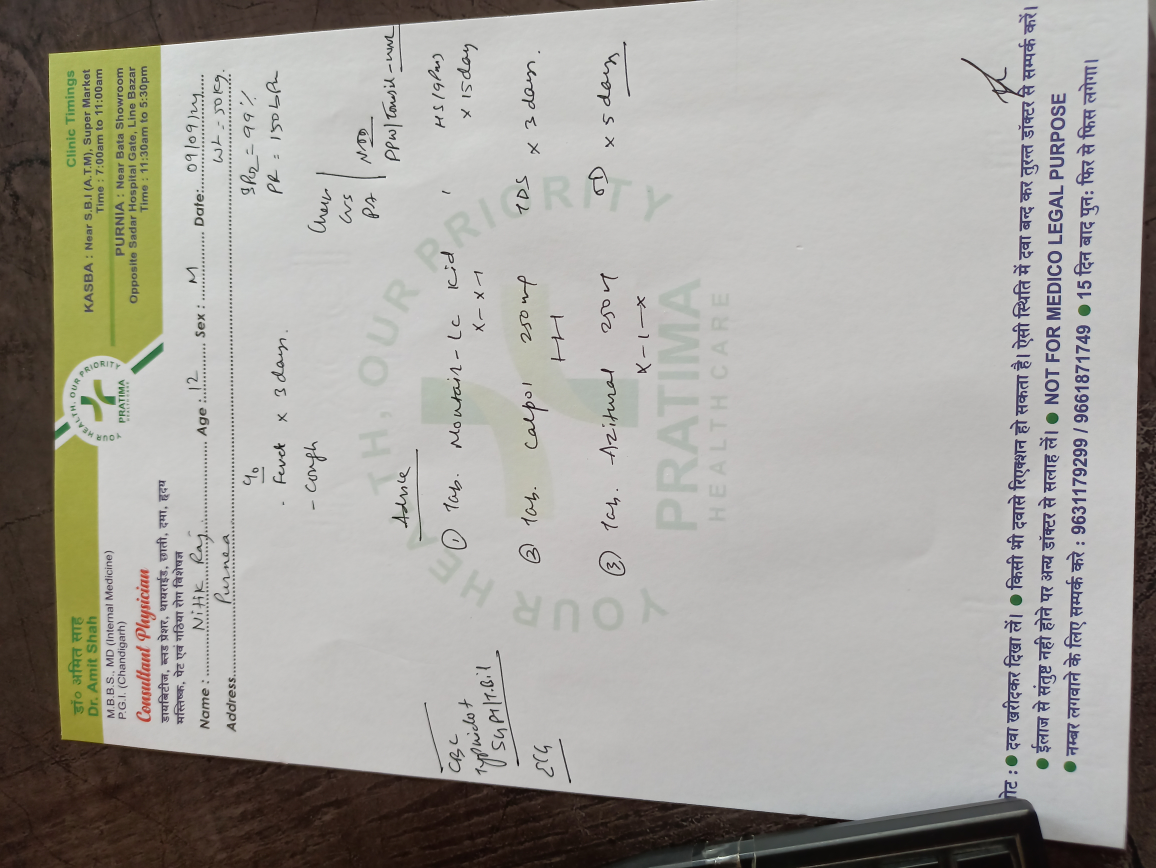 डॉ० अमित साह
Dr. Amit Shah
M.B.B.S., MD (Internal Medicine)
P.G.I. (Chandigarh)
Consultant Physician
डायबिटीज, ब्लड प्रेशर, थायराईड, छाती, दमा, हृदय
मस्तिष्क, पेट एवं गठिया रोग विशेषज्ञ
YOUR HEALTH, OUR PRIORITY
PRATIMA
HEALTHCARE
Clinic Timings
KASBA : Near S.B.I (A.T.M), Super Market
Time : 7:00am to 11:00am
PURNIA : Near Bata Showroom
Opposite Sadar Hospital Gate, Line Bazar
Time : 11:30am to 5:30pm
Name : Nitik Raj Age : 12 Sex : M Date: 09/09/
Address Purnea Wt = 50 Kg.
SPO2 = 99%
PR = 150 bPm
C/o
- Fever x 3 days.
- Cough
Chest
CVS
PA
NAD
Advice
① Tab. Montair-LC Kid
x-x-1
x 15day
② Tab. Calpol 250 mg TDS x 3 days.
1-1-1
③ Tab. Azitural 250 mg OD x 5 days
x-1-x
CBC
Typhidot
SGPT/T.Bil
ECG
YOUR HEALTH, OUR PRIORITY
PRATIMA
HEALTHCARE
नोट : ● दवा खरीदकर दिखा लें। ● किसी भी दवासे रिएक्शन हो सकता है। ऐसी स्थिति में दवा बन्द कर तुरन्त डॉक्टर से सम्पर्क करें।
● ईलाज से संतुष्ट नही होने पर अन्य डॉक्टर से सलाह लें। ● NOT FOR MEDICO LEGAL PURPOSE
● नम्बर लगवाने के लिए सम्पर्क करे : 9631179299 / 9661871749 ● 15 दिन बाद पुन: फिर से फिस लगेगा।